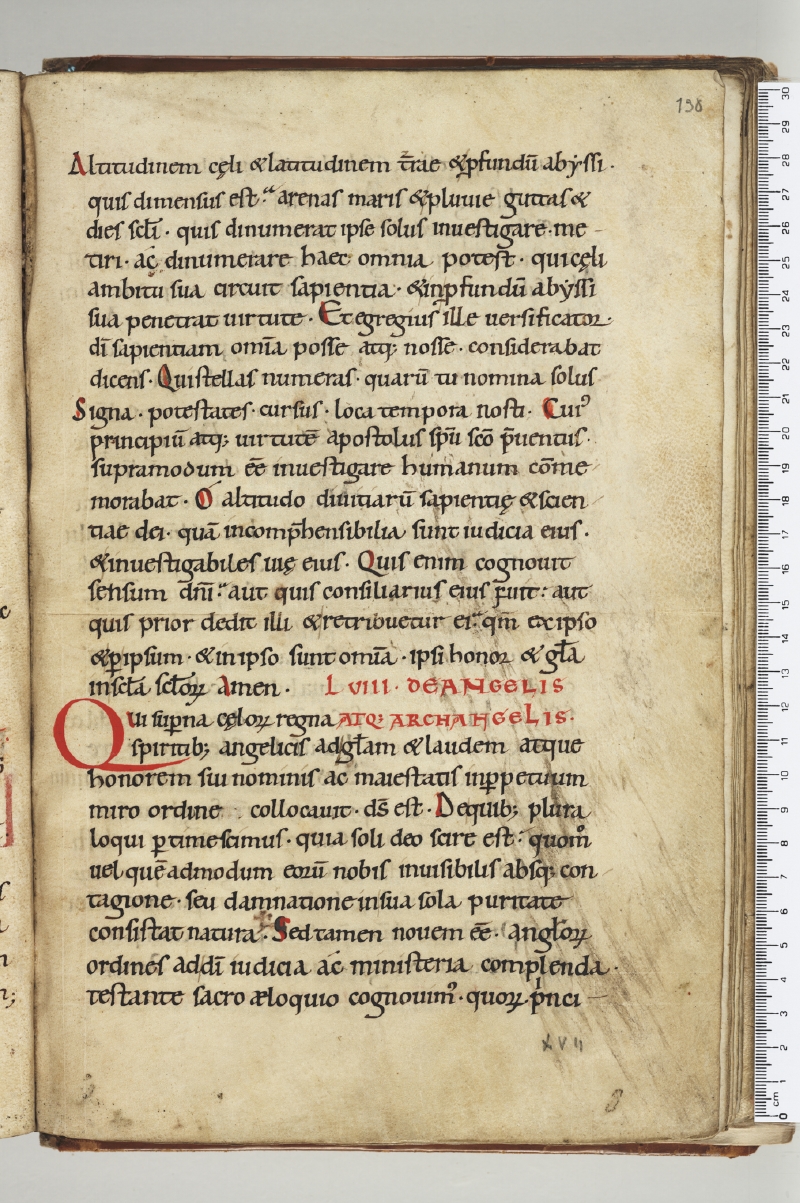 138
Altitudinem cęli & latitudinem t̄rae & ꝓfundū abẏssi ·
quis dimensus est · arenas maris & pluuie guttas &
dies scl̄i · quis dinumerat ipse solus inuestigare · me
tiri · ac dinumerare haec omnia potest · qui cęli
ambitū sua circuit sapientia · & in ꝓfundū abẏssi
sua penetrat uirtute · Et egregius ille uersificator
dī sapientiam omīa posse atq; nosse · considerabat
dicens · Qui stellas numeras · quarū tu nomina solus
Signa · potestates · cursus · loca tempora nosti · Cui᾿
principiū atq; uirtutē apostolus sp̄u scō p̄uentus ·
supra modum ēē inuestigare humanum cōme
morabat · O altitudo diuitiarū sapientię & scien
tiae dei · quā incomp̄hensibilia sunt iudicia eius ·
& inuestigabiles uię eius · Quis enim cognouit
sensum dn̄i · aut quis consiliarius eius fuit : aut
quis prior dedit illi & retribuetur ei · qm̄ ex ipso
& ꝑ ipsum · & in ipso sunt omīa · ipsi honor & gl̄a
in scl̄a scl̄oꝝ Amen · LVIII · DE ANGELIS
Qui sup̄na cęloꝝ regna ATQ; ARCHANGELIS ·
spiritib; angelicis ad gl̄am & laudem atque
honorem sui nominis ac maiestatis in ꝑpetuum
miro ordine collocauit · ds̄ est · De quib; plura
loqui ꝑtimescimus · quia soli deo scire est · quom᾿
uel quēadmodum eorū nobis inuisibilis absq; con
tagione · seu damnatione in sua sola puritate
consistat natura · Sed tamen nouem ēē · angl̄oꝝ
ordines ad dī iudicia ac ministeria complenda ·
testante sacro æloquio cognouim᾿ · quoꝝ · p̄nci
XVII